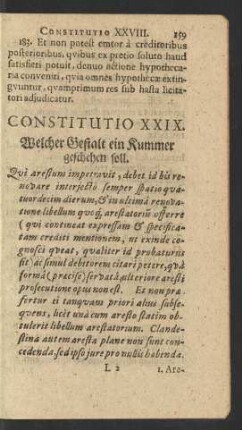 CONSTITUTIO XXVIII. 159
183. Et non potest emtor à creditoribus
posterioribus, quibus ex pretio soluto haud
satisfieri potuit, denuo actione hypotheca-
ria conveniri, quia omnes hypothecæ extin-
guuntur, quamprimum res sub hasta licita-
tori adjudicatur.
CONSTITUTIO XXIX.
Welcher Gestalt ein Kummer
geschehen soll.
Qui arestum impetravit, debet id bis re-
novare interjecto semper spatio qua-
tuordecim dierum, & in ultima renova-
tione libellum quoq; arestatoriũ offerre
( qui contineat expressam & specifica-
tam crediti mentionem, ut exinde co-
gnosci queat, qualiter id probaturus
sit) ac simul debitorem citari petere, quâ
formâ (præcise) servatâ, alteriore aresti
prosecutione opus non est. Et non præ-
fertur ei tanquam priori alius subse-
quens, licet unà cum aresto statim ob-
tulerit libellum arestatorium. Clande-
stina autem aresta plane non sunt con-
cedenda, sed ipso jure pro nullis habenda.
L 2 1. Are-